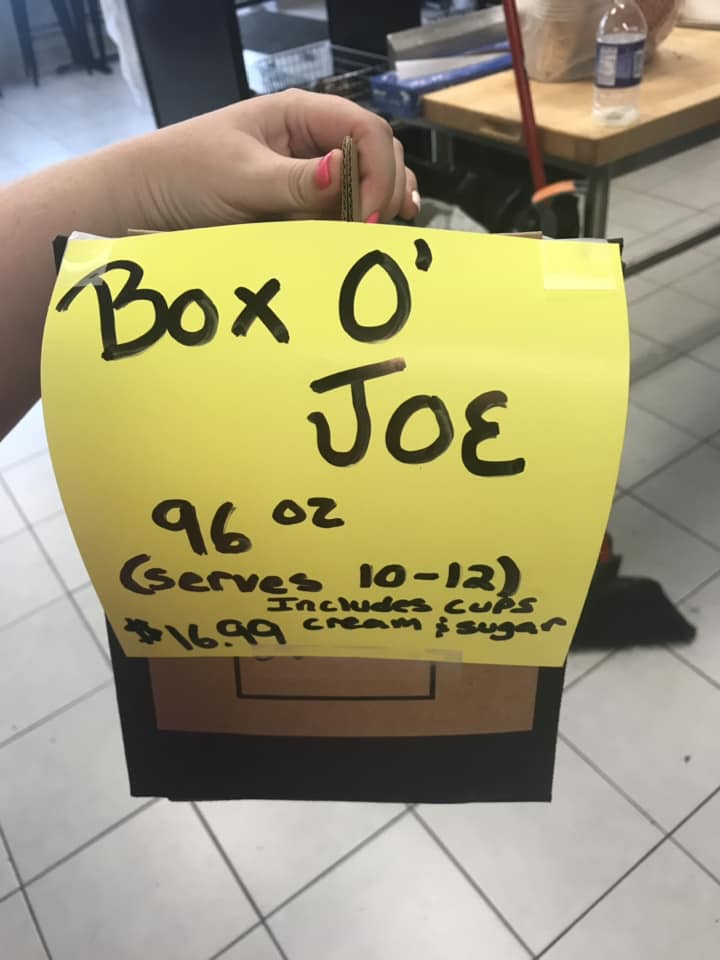 Box O'
JOE
96 oz
(serves 10-12)
Includes cups
$16.99 cream & sugar